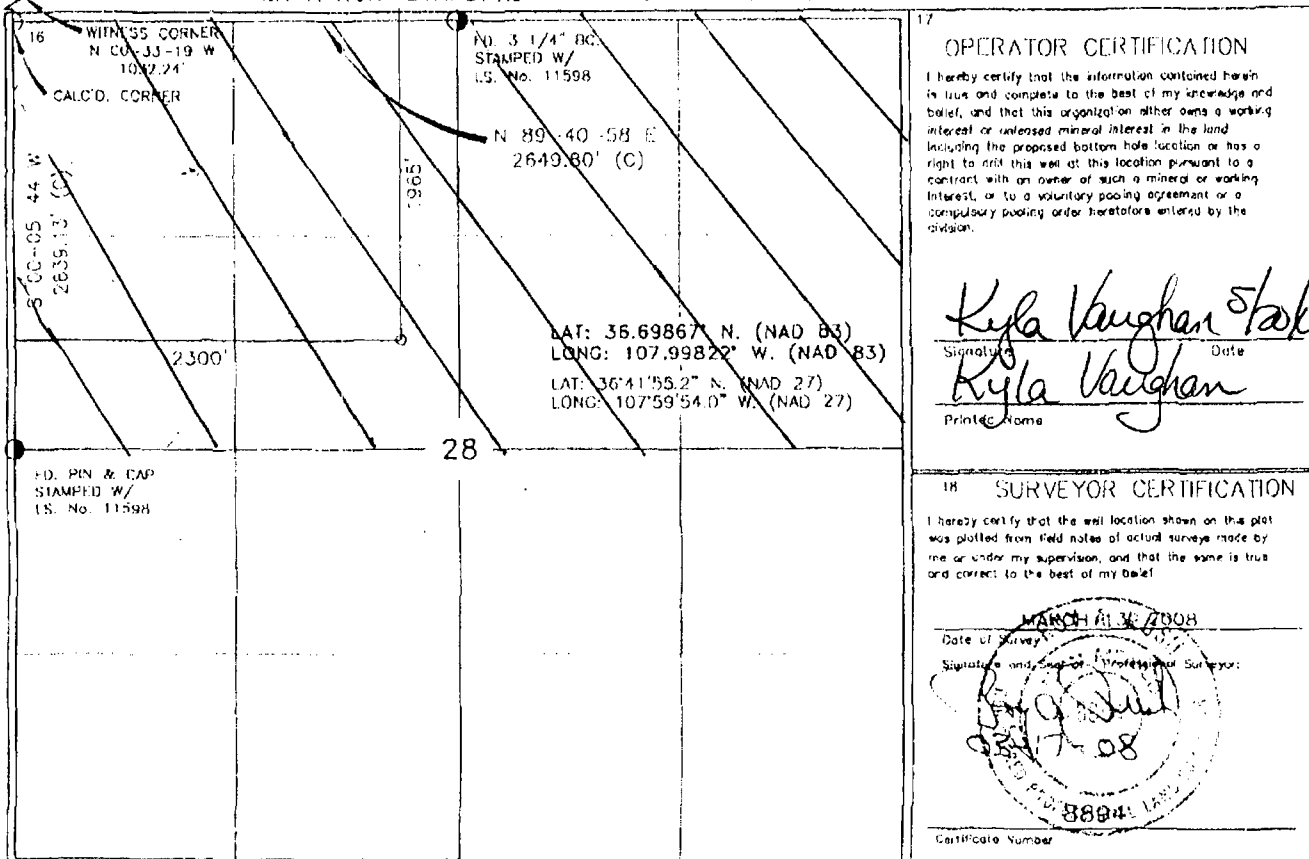 16
WITNESS CORNER
N 00-33-19 W
CALC'D. CORNER
S 00-05 44 W
2639.13' (C)
FD. 3 1/4" BC.
STAMPED W/
LS. No. 11598
N 89-40-58 E
2649.80' (C)
2300'
LAT: 36.69867° N. (NAD 83)
LONG: 107.99822° W. (NAD 83)
LAT: 36°41'55.2" N. (NAD 27)
LONG: 107°59'54.0" W. (NAD 27)
28
FD. PIN & CAP
STAMPED W/
LS. No. 11598
17
OPERATOR CERTIFICATION
I hereby certify that the information contained herein
is true and complete to the best of my knowledge and
belief, and that this organization either owns a working
interest or unleased mineral interest in the land
including the proposed bottom hole location or has a
right to drill this well at this location pursuant to a
contract with an owner of such a mineral or working
interest, or to a voluntary pooling agreement or a
compulsory pooling order heretofore entered by the
division.
Kyla Vaughan
Signature Date
Kyla Vaughan
Printed Name
18 SURVEYOR CERTIFICATION
I hereby certify that the well location shown on this plat
was plotted from field notes of actual surveys made by
me or under my supervision, and that the same is true
and correct to the best of my belief
MARCH 2008
Date of Survey
Signature and Seal of Professional Surveyor:
8894
Certificate Number